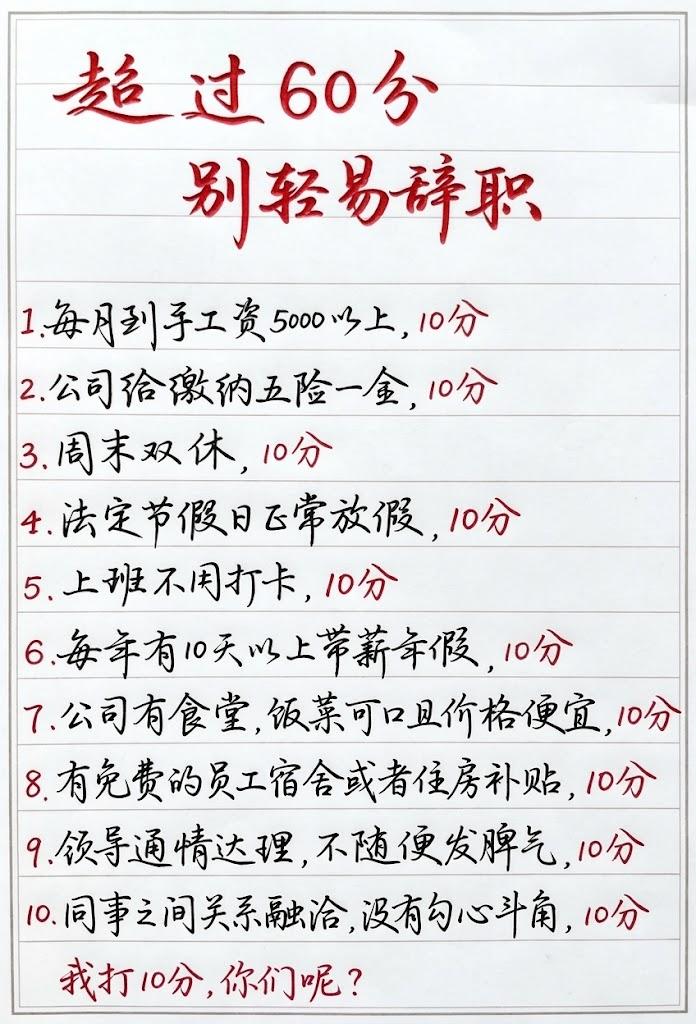 超过60分
别轻易辞职
1.每月到手工资5000以上,10分
2.公司给缴纳五险一金,10分
3.周末双休,10分
4.法定节假日正常放假,10分
5.上班不用打卡,10分
6.每年有10天以上带薪年假,10分
7.公司有食堂,饭菜可口且价格便宜,10分
8.有免费的员工宿舍或者住房补贴,10分
9.领导通情达理,不随便发脾气,10分
10.同事之间关系融洽,没有勾心斗角,10分
我打10分,你们呢?